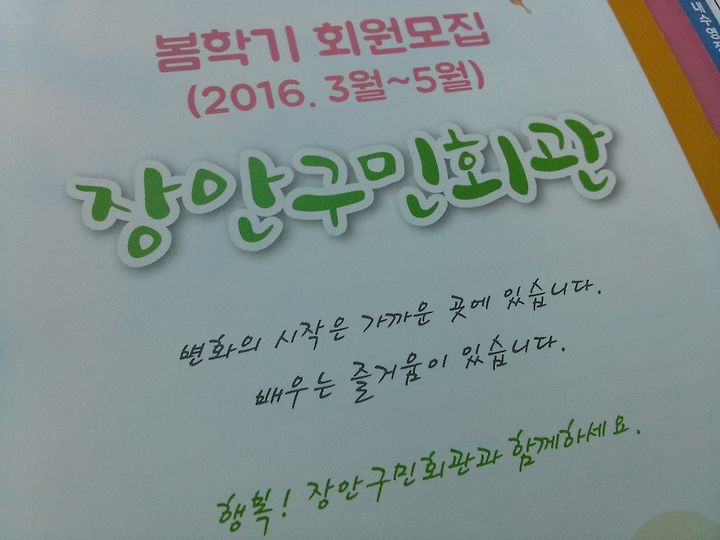 봄학기 회원모집
(2016. 3월~5월)
장안구민회관
변화의 시작은 가까운 곳에 있습니다.
배우는 즐거움이 있습니다.
행복! 장안구민회관과 함께하세요.